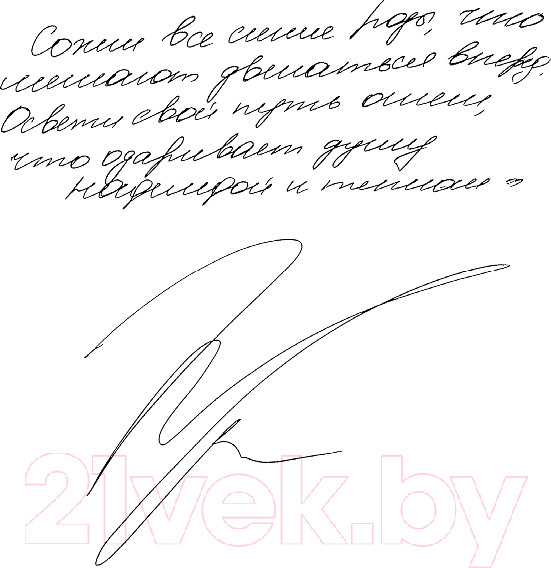 Сожги все синие розы, что
мешают двигаться вперед.
Освети свой путь огнем,
что одаривает душу
надеждой и теплом
21vek.by